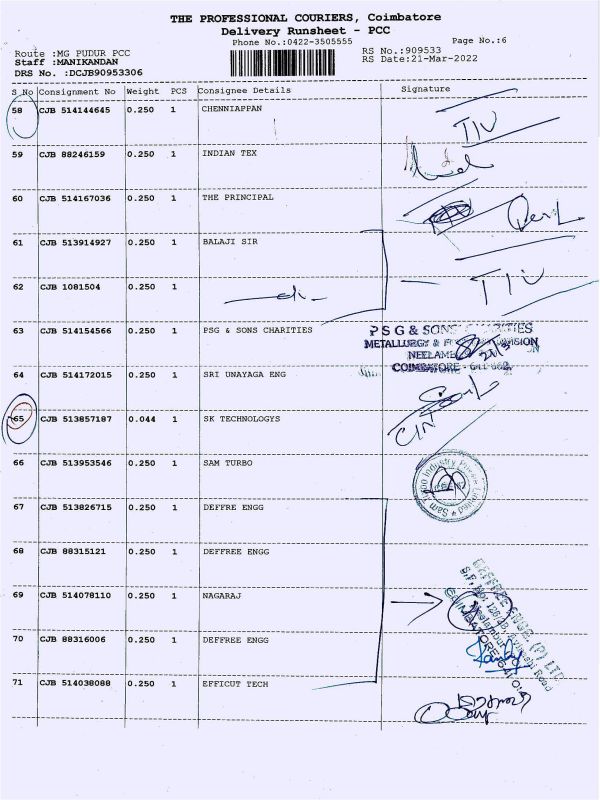 THE PROFESSIONAL COURIERS, Coimbatore
Delivery Runsheet - PCC
Phone No.:0422-3505555
Page No.:6
Route :MG PUDUR PCC
Staff :MANIKANDAN
DRS No. :DCJB90953306
RS No.:909533
RS Date:21-Mar-2022
S_No Consignment No Weight PCS Consignee Details Signature
58 CJB 514144645 0.250 1 CHENNIAPPAN
59 CJB 88246159 0.250 1 INDIAN TEX
60 CJB 514167036 0.250 1 THE PRINCIPAL
61 CJB 513914927 0.250 1 BALAJI SIR
62 CJB 1081504 0.250 1
63 CJB 514154566 0.250 1 PSG & SONS CHARITIES
P S G & SONS CHARITIES
METALLURGY & DIVISION
COIMBATORE
64 CJB 514172015 0.250 1 SRI UNAYAGA ENG
65 CJB 513857187 0.044 1 SK TECHNOLOGYS
66 CJB 513953546 0.250 1 SAM TURBO
Sam Turbo Industry Private Limited
67 CJB 513826715 0.250 1 DEFFRE ENGG
68 CJB 88315121 0.250 1 DEFFREE ENGG
69 CJB 514078110 0.250 1 NAGARAJ
70 CJB 88316006 0.250 1 DEFFREE ENGG
71 CJB 514038088 0.250 1 EFFICUT TECH